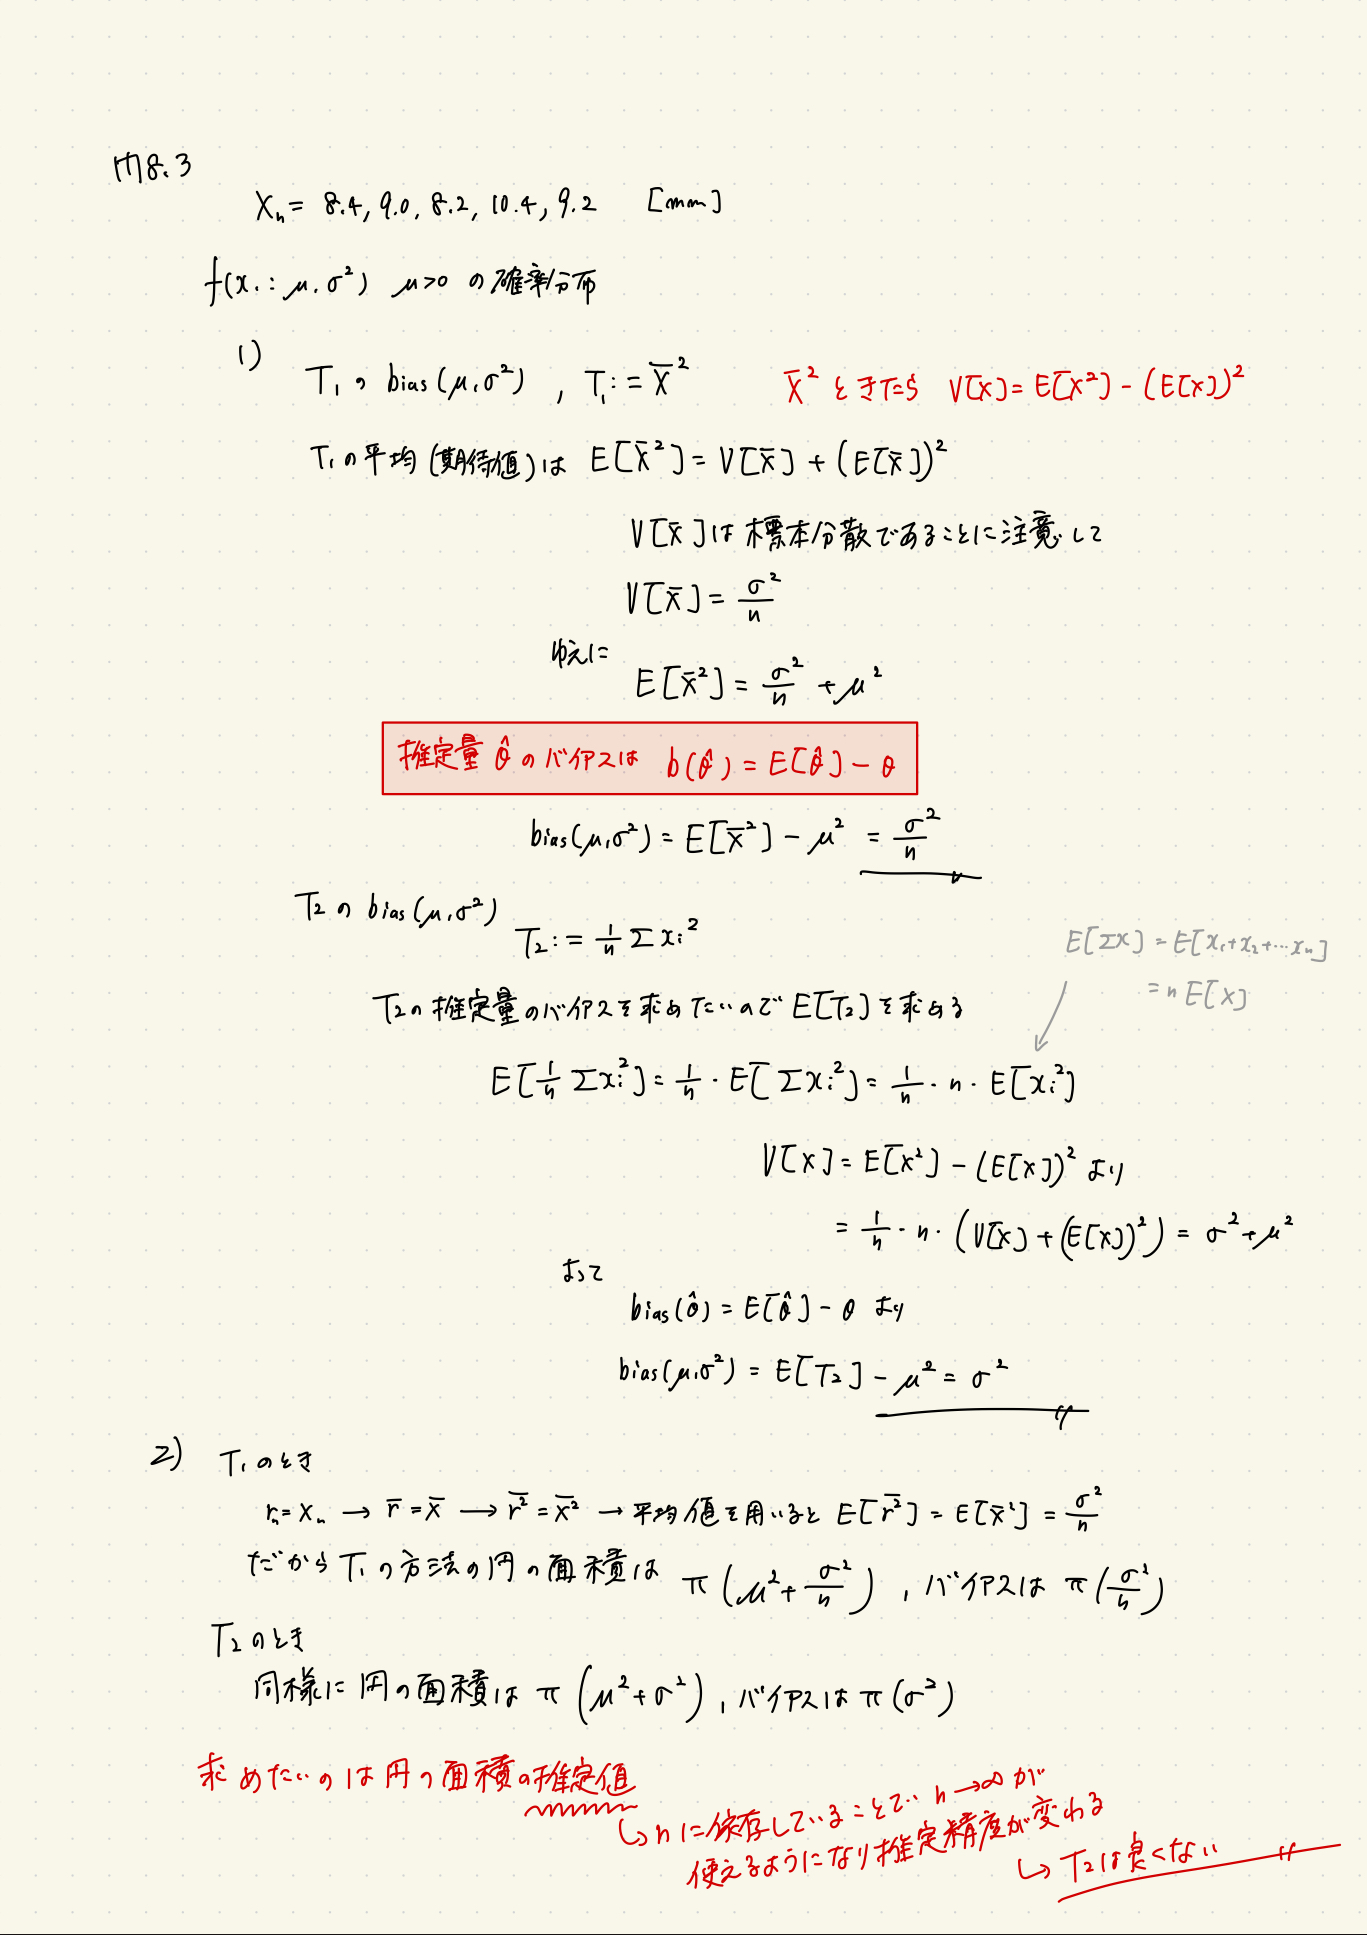 問8.3
Xₙ= 8.4, 9.0, 8.2, 10.4, 9.2 [mm]
f(x.: μ, σ²) μ>0 の確率分布
1)
T₁の bias(μ,σ²) , T₁:=X̄² X̄²ときたら V[X]=E[X²]-(E[X])²
T₁の平均(期待値)は E[X̄²]=V[X̄]+(E[X̄])²
V[x̄]は標本分散であることに注意して
V[x̄]=σ²/n
ゆえに
E[x̄²]=σ²/n+μ²
推定量 θ̂ のバイアスは b(θ̂)=E[θ̂]-θ
bias(μ,σ²)=E[x̄²]-μ² =σ²/n
T₂の bias(μ,σ²)
T₂:=1/n Σxᵢ²
E[Σx]=E[x₁+x₂+…xₙ]
=nE[X]
T₂の推定量のバイアスを求めたいので E[T₂]を求める
E[1/n Σxᵢ²]=1/n・E[Σxᵢ²]=1/n・n・E[xᵢ²]
V[X]=E[X²]-(E[X])²より
=1/n・n・(V[X]+(E[X])²)=σ²+μ²
よって
bias(θ̂)=E[θ̂]-θ より
bias(μ,σ²)=E[T₂]-μ²=σ²
2) T₁のとき
rₙ=Xₙ → r̄=x̄ → r̄²=x̄² → 平均値を用いると E[r̄²]=E[x̄²]=σ²/n
だから T₁の方法の円の面積は π(μ²+σ²/n) , バイアスは π(σ²/n)
T₂のとき
同様に円の面積は π(μ²+σ²) , バイアスは π(σ²)
求めたいのは円の面積の推定値
↳nに依存していることで n→∞が
使えるようになり推定精度が変わる
↳T₂は良くない